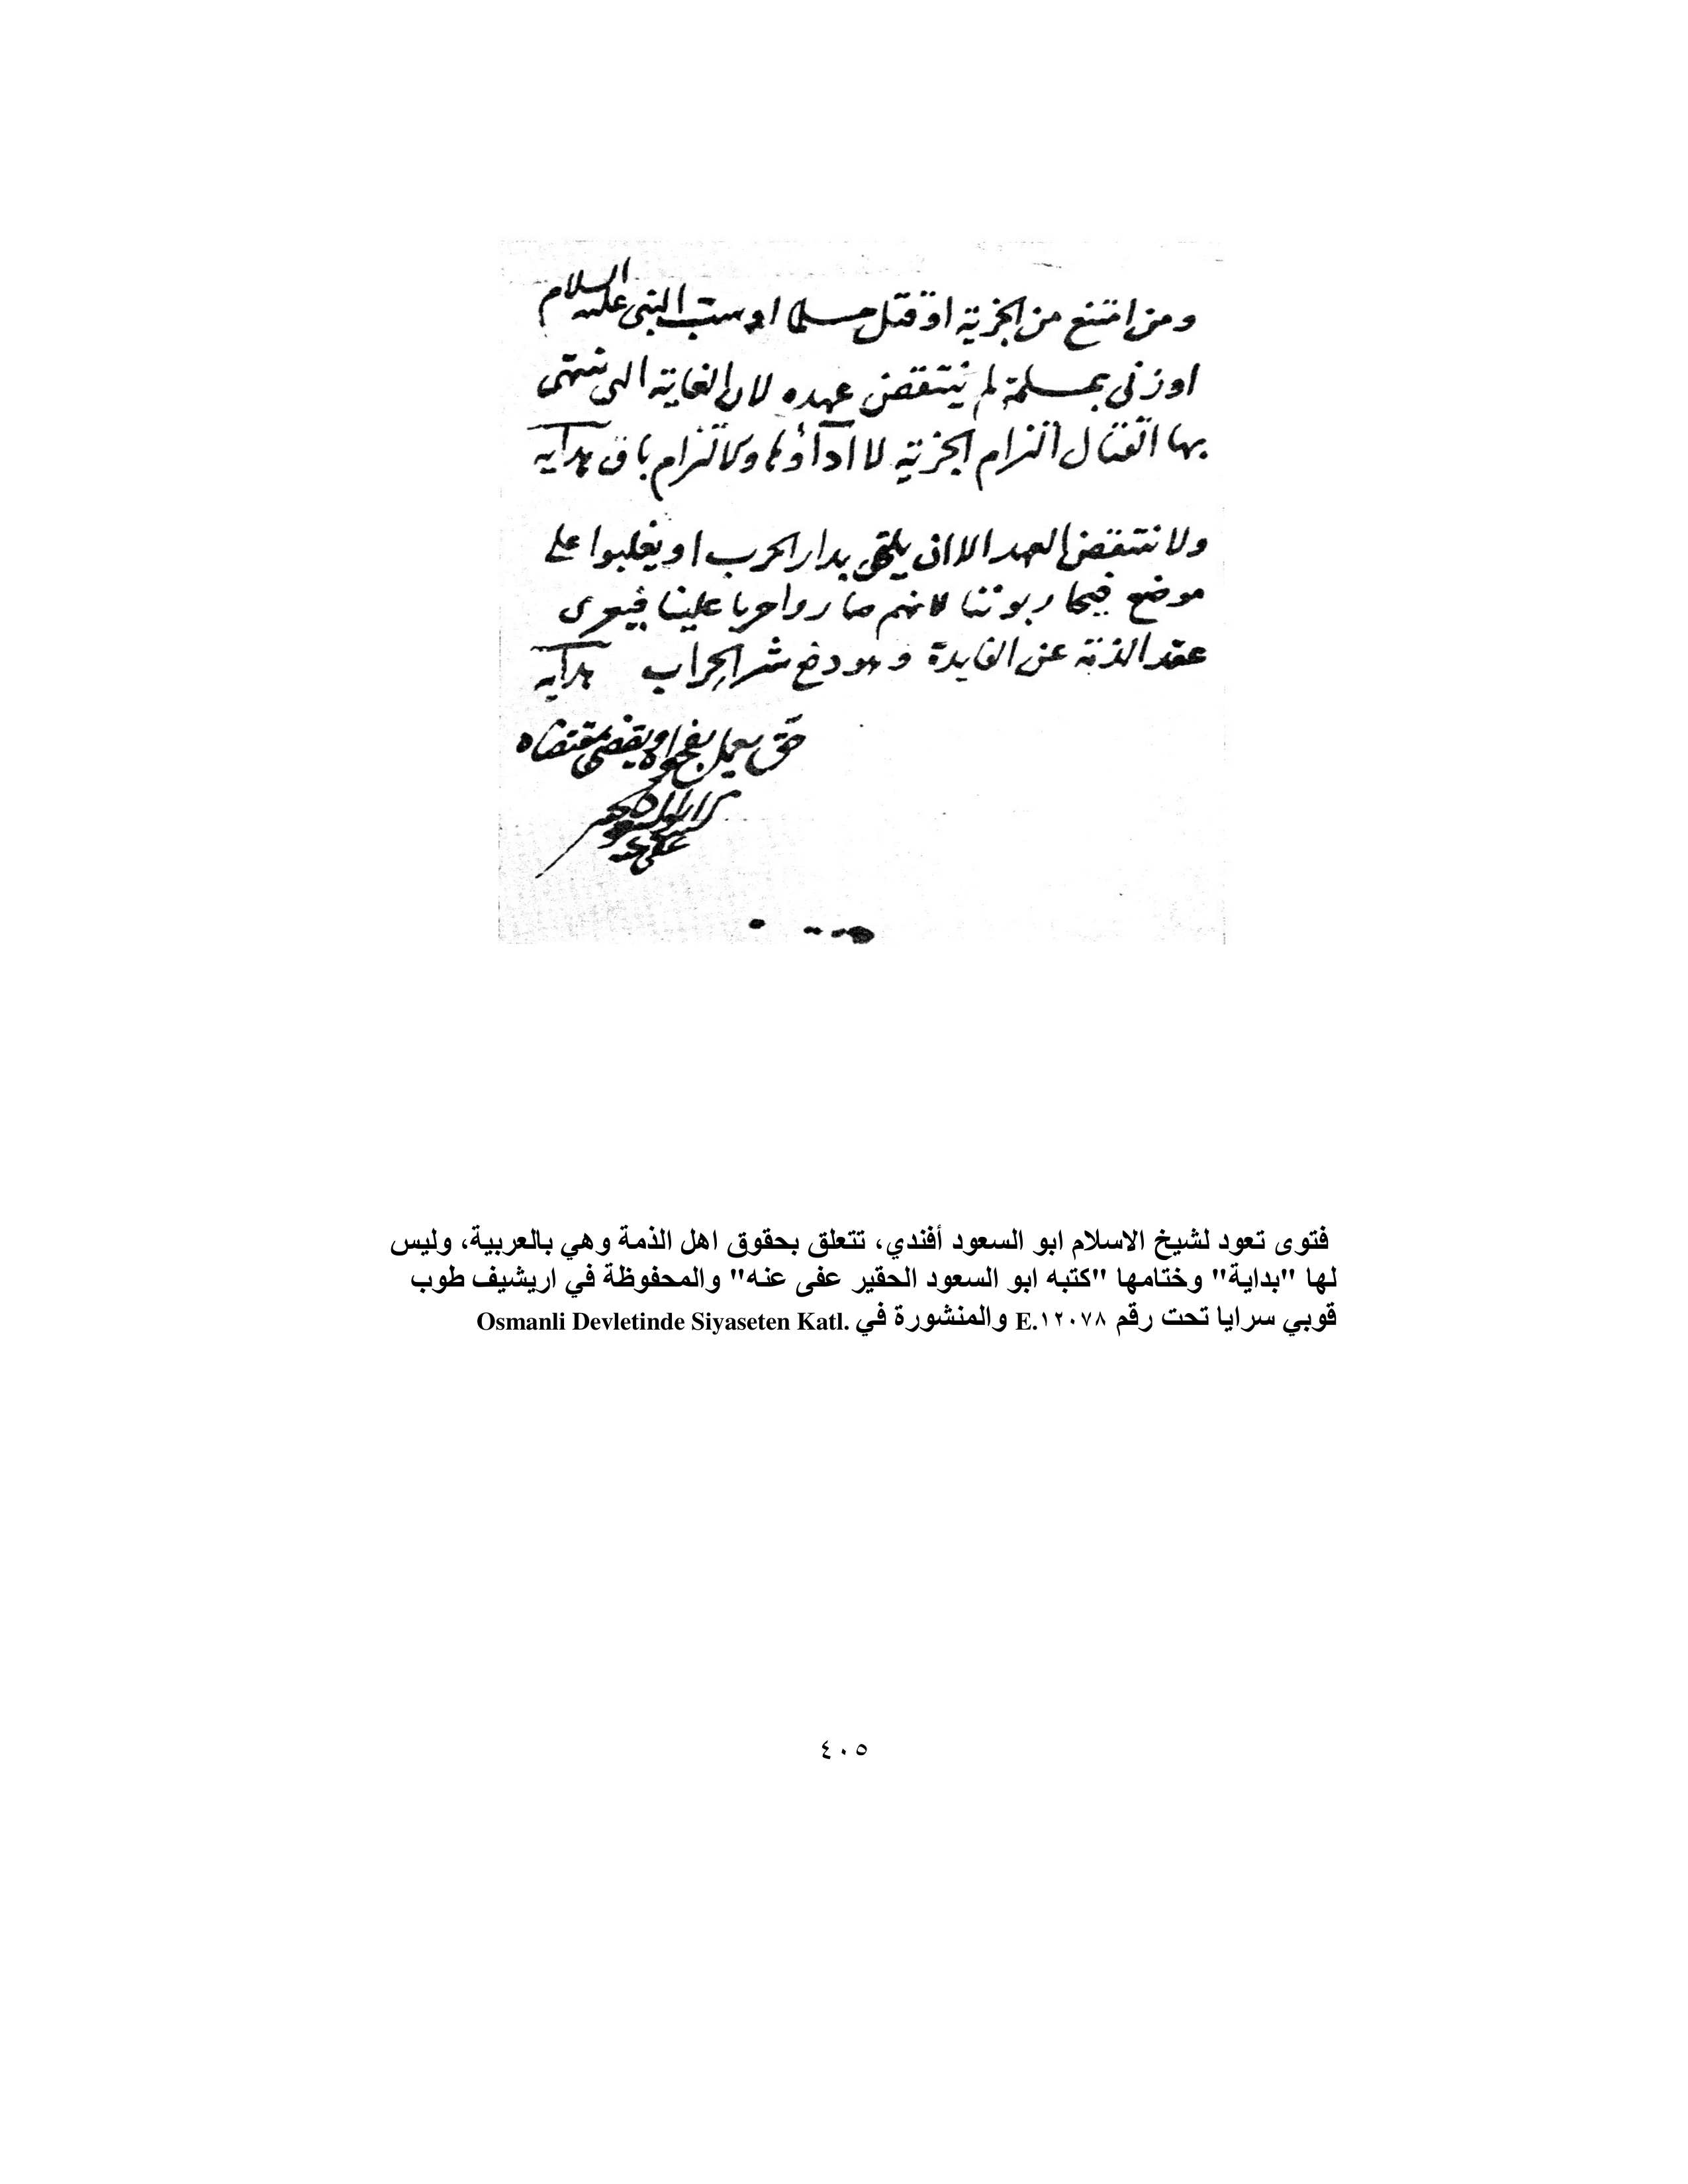 ومن امتنع من الجزية او قتل مسلما او سب النبى عليه السلام
او زنى بمسلمة لم ينتقض عهده لان الغاية التى ينتهى
بها القتال التزام الجزية لا اداؤها والالتزام باق هدايه
ولا ينتقض العهد الا ان يلتحق بدار الحرب او يغلبوا على
موضع فيحاربوننا لانهم صاروا حربا علينا فيعرى
عقد الذمة عن الفايدة وهو دفع شر الحراب هدايه
حق يعمل بفحواه ويقضى بمقتضاه
كتبه ابو السعود الحقير
عفى عنه
فتوى تعود لشيخ الاسلام ابو السعود أفندي، تتعلق بحقوق اهل الذمة وهي بالعربية، وليس
لها "بداية" وختامها "كتبه ابو السعود الحقير عفى عنه" والمحفوظة في اريشيف طوب
قوبي سرايا تحت رقم E.١٢٠٧٨ والمنشورة في Osmanli Devletinde Siyaseten Katl.
٤٠٥